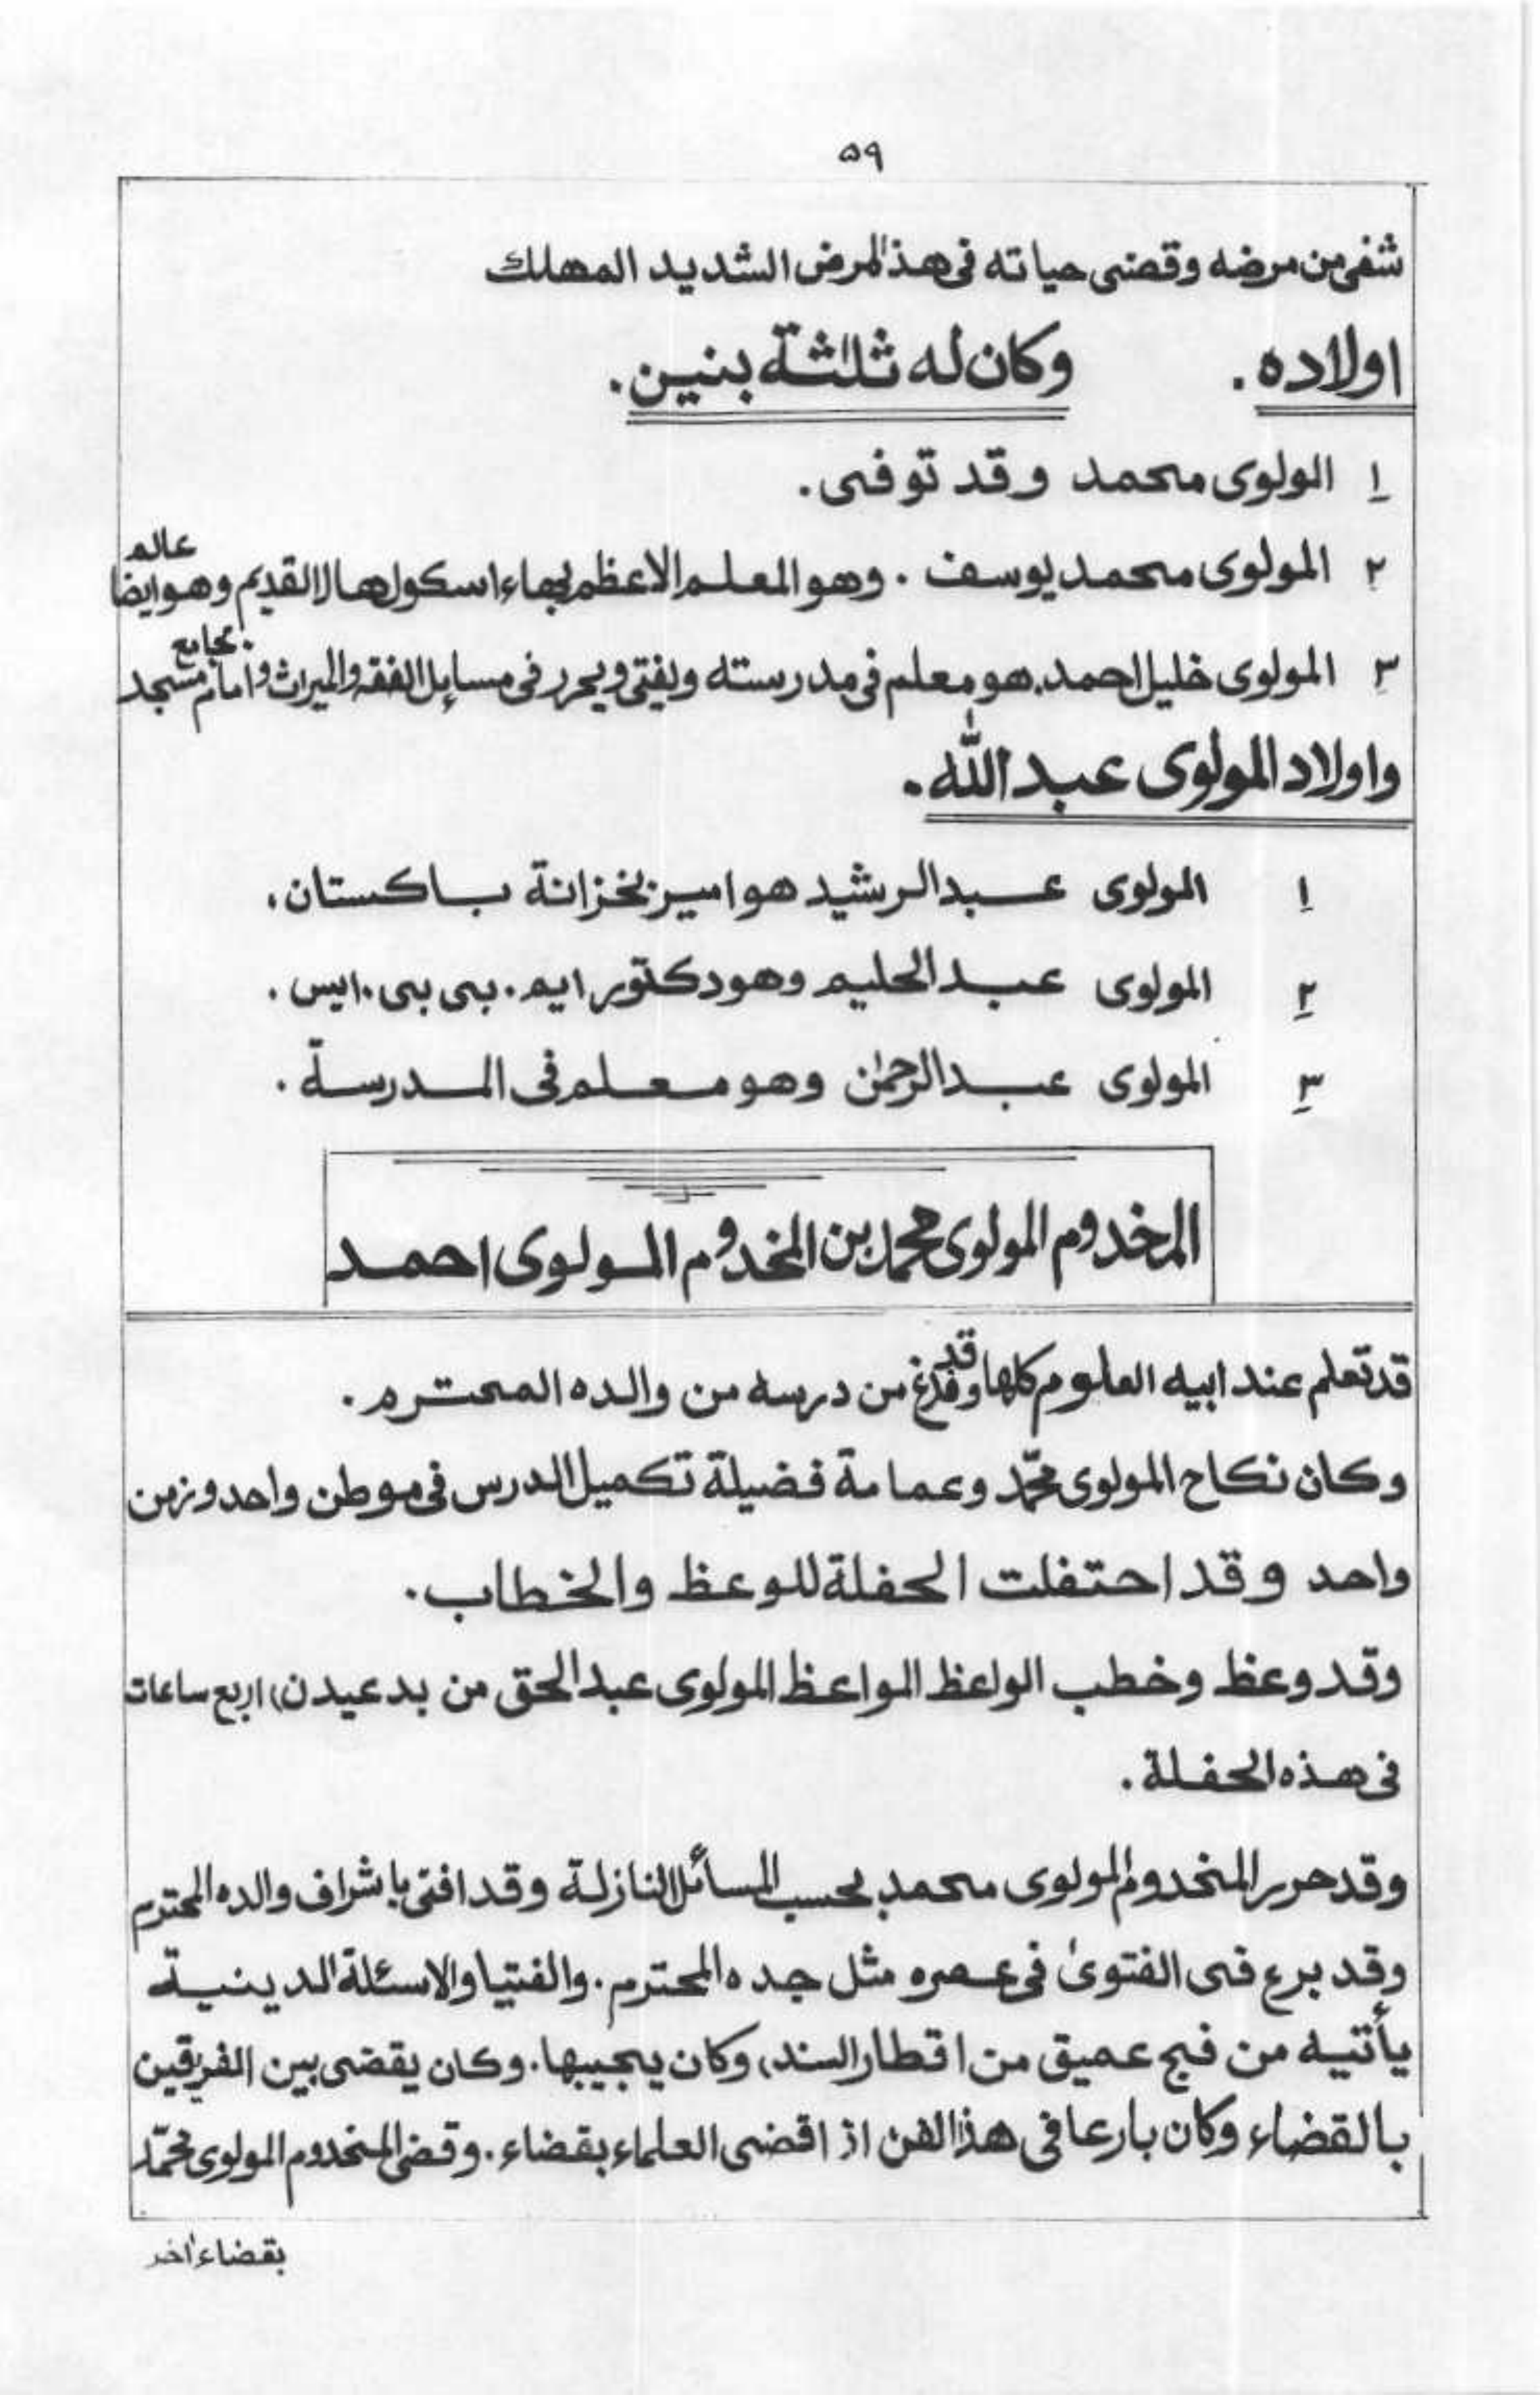 ۵۹
شفی من مرضه وقضی حیاته فی هذا المرض الشدید المهلك
اولاده . وکان له ثلاثة بنین .
۱ الولوی محمد وقد توفی .
۲ المولوی محمد یوسف . وهو المعلم الاعظم بهاء اسکول هالا القدیم وهو ایضا عالم
۳ المولوی خلیل احمد . هو معلم فی مدرسته ویفتی ویحرر فی مسایل الفقه والمیراث و امام مسجد جامع
واولاد المولوی عبد اللّٰه .
۱ المولوی عبد الرشید هو امیر بخزانة باکستان .
۲ المولوی عبد الحلیم وهو دکتور ایم . بی بی . ایس .
۳ المولوی عبد الرحمٰن وهو معلم فی المدرسة .
المخدوم المولوی محمد بن المخدوم المولوی احمد
قد تعلم عند ابیه العلوم کلها وقد فرغ من درسه من والده المحترم .
وکان نکاح المولوی محمّد وعمامة فضیلة تکمیل الدرس فی موطن واحد وزمن
واحد وقد احتفلت الحفلة للوعظ والخطاب .
وقد وعظ وخطب الواعظ المواعظ المولوی عبد الحق من بدعیدن، اربع ساعات
فی هذه الحفلة .
وقد حرر المخدوم المولوی محمد بحسب المسائل النازلة وقد افتی باشراف والده المحترم
وقد برع فی الفتویٰ فی عصره مثل جده المحترم . والفتیا والاسئلة الدینیة
یأتیه من فج عمیق من اقطار السند، وکان یجیبها . وکان یقضی بین الفریقین
بالقضاء وکان بارعا فی هذا الفن اذ اقضی العلماء بقضاء . وقضی المخدوم المولوی محمّد
بقضاء اٰخر